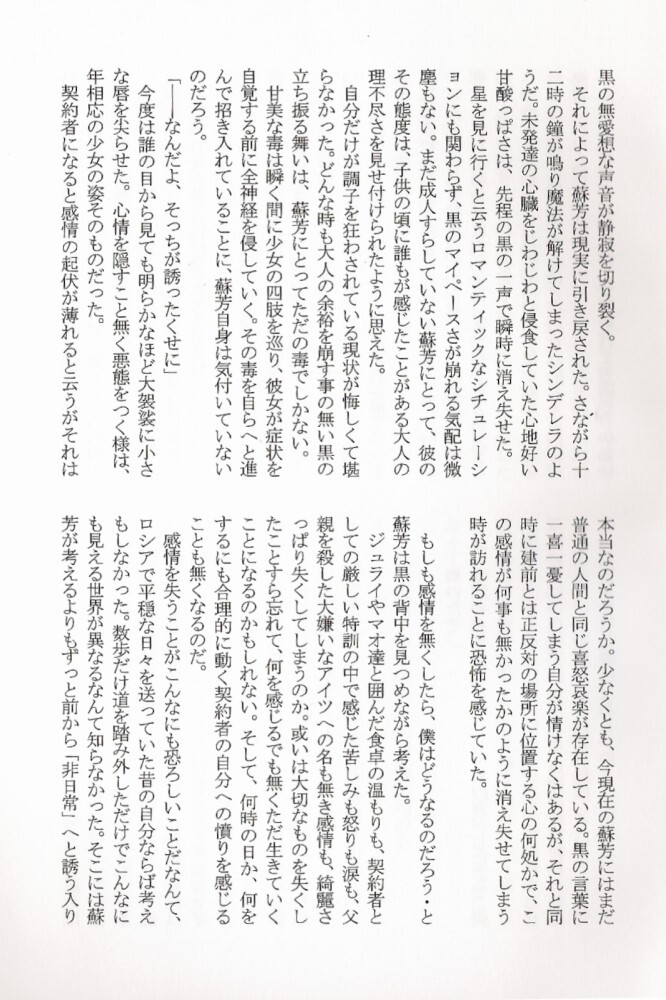 黒の無愛想な声音が静寂を切り裂く。
　それによって蘇芳は現実に引き戻された。さながら十
二時の鐘が鳴り魔法が解けてしまったシンデレラのよ
うだ。未発達の心臓をじわじわと侵食していた心地好い
甘酸っぱさは、先程の黒の一声で瞬時に消え失せた。
　星を見に行くと云うロマンティックなシチュレーシ
ョンにも関わらず、黒のマイペースさが崩れる気配は微
塵もない。まだ成人すらしていない蘇芳にとって、彼の
その態度は、子供の頃に誰もが感じたことがある大人の
理不尽さを見せ付けられたように思えた。
　自分だけが調子を狂わされている現状が悔しくて堪
らなかった。どんな時も大人の余裕を崩す事の無い黒の
立ち振る舞いは、蘇芳にとってただの毒でしかない。
　甘美な毒は瞬く間に少女の四肢を巡り、彼女が症状を
自覚する前に全神経を侵していく。その毒を自らへと進
んで招き入れていることに、蘇芳自身は気付いていない
のだろう。
「――なんだよ、そっちが誘ったくせに」
　今度は誰の目から見ても明らかなほど大袈裟に小さ
な唇を尖らせた。心情を隠すこと無く悪態をつく様は、
年相応の少女の姿そのものだった。
　契約者になると感情の起伏が薄れると云うがそれは
本当なのだろうか。少なくとも、今現在の蘇芳にはまだ
普通の人間と同じ喜怒哀楽が存在している。黒の言葉に
一喜一憂してしまう自分が情けなくはあるが、それと同
時に建前とは正反対の場所に位置する心の何処かで、こ
の感情が何事も無かったかのように消え失せてしまう
時が訪れることに恐怖を感じていた。
　もしも感情を無くしたら、僕はどうなるのだろう・と
蘇芳は黒の背中を見つめながら考えた。
　ジュライやマオ達と囲んだ食卓の温もりも、契約者と
しての厳しい特訓の中で感じた苦しみも怒りも涙も、父
親を殺した大嫌いなアイツへの名も無き感情も、綺麗さ
っぱり失くしてしまうのか。或いは大切なものを失くし
たことすら忘れて、何を感じるでも無くただ生きていく
ことになるのかもしれない。そして、何時の日か、何を
するにも合理的に動く契約者の自分への憤りを感じる
ことも無くなるのだ。
　感情を失うことがこんなにも恐ろしいことだなんて、
ロシアで平穏な日々を送っていた昔の自分ならば考え
もしなかった。数歩だけ道を踏み外しただけでこんなに
も見える世界が異なるなんて知らなかった。そこには蘇
芳が考えるよりもずっと前から「非日常」へと誘う入り